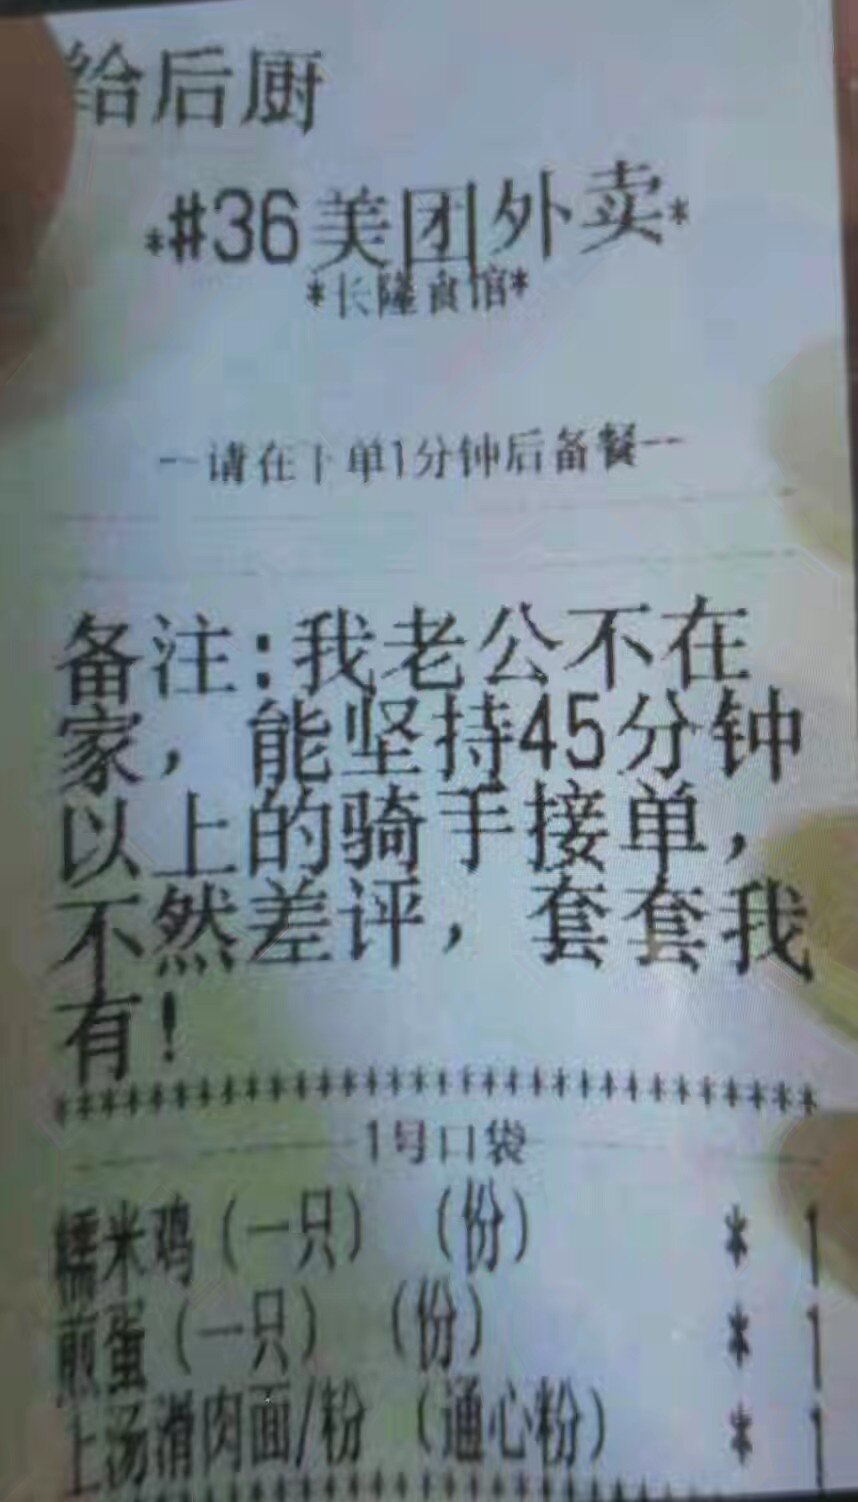 给后厨
*#36美团外卖*
*长隆食馆*
--请在下单1分钟后备餐--
备注:我老公不在
家，能坚持45分钟
以上的骑手接单，
不然差评，套套我
有!
********************************
1号口袋
糯米鸡(一只) (份) * 1
煎蛋(一只) (份) * 1
上汤滑肉面/粉 (通心粉) * 1